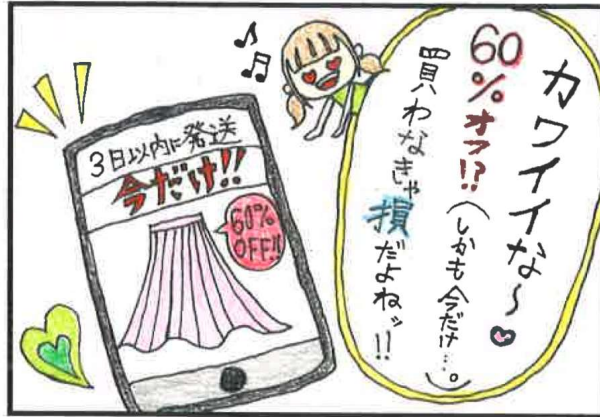 カワイイな〜♥
60%オフ!?(しかも今だけ…。)
買わなきゃ損だよねッ!!
3日以内に発送
今だけ!!
60%
OFF!!